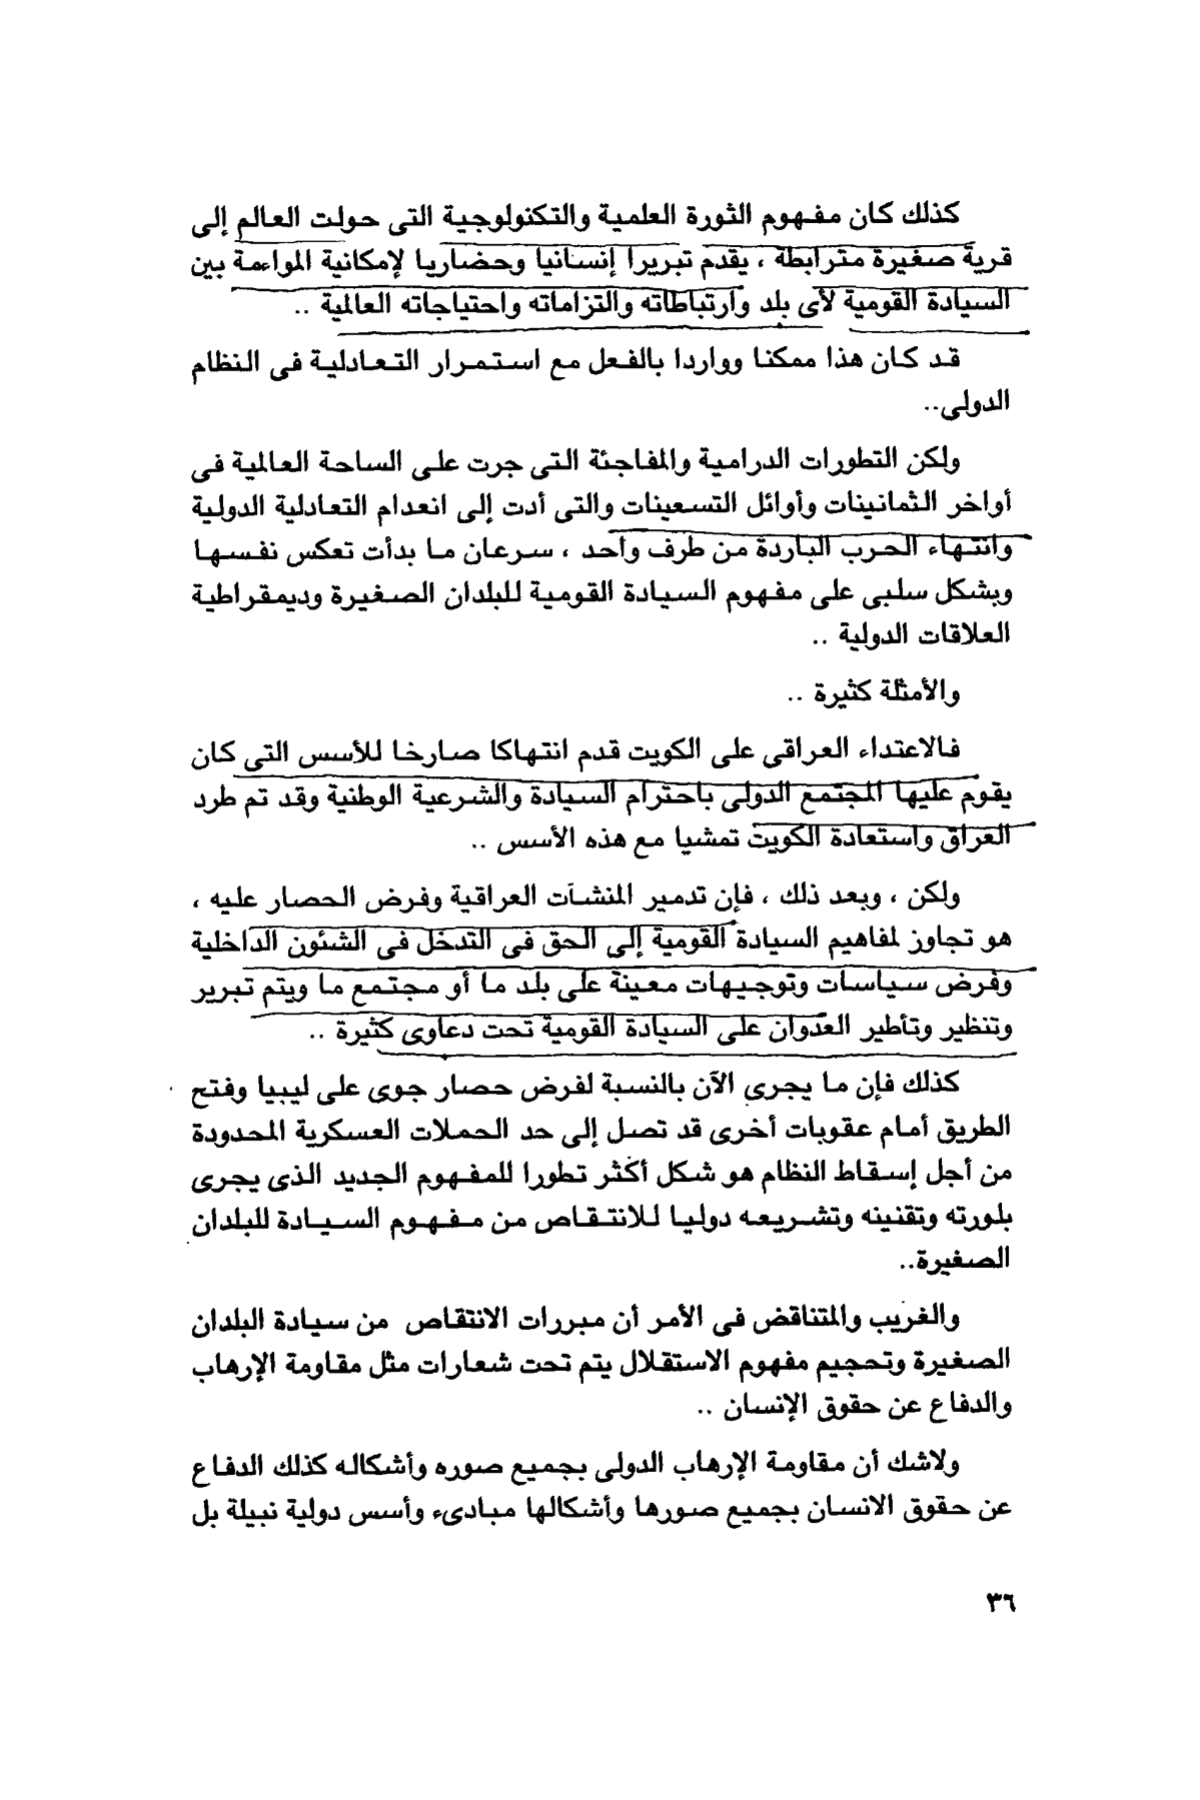 كذلك كان مفهوم الثورة العلمية والتكنولوجية التى حولت العالم إلى
قرية صغيرة مترابطة ، يقدم تبريرا إنسانيا وحضاريا لإمكانية المواءمة بين
السيادة القومية لأى بلد وارتباطاته والتزاماته واحتياجاته العالمية ..
قد كان هذا ممكنا وواردا بالفعل مع استمرار التعادلية فى النظام
الدولى..
ولكن التطورات الدرامية والمفاجئة التى جرت على الساحة العالمية فى
أواخر الثمانينات وأوائل التسعينات والتى أدت إلى انعدام التعادلية الدولية
وانتهاء الحرب الباردة من طرف واحد ، سرعان ما بدأت تعكس نفسها
وبشكل سلبى على مفهوم السيادة القومية للبلدان الصغيرة وديمقراطية
العلاقات الدولية ..
والأمثلة كثيرة ..
فالاعتداء العراقى على الكويت قدم انتهاكا صارخا للأسس التى كان
يقوم عليها المجتمع الدولى باحترام السيادة والشرعية الوطنية وقد تم طرد
العراق واستعادة الكويت تمشيا مع هذه الأسس ..
ولكن ، وبعد ذلك ، فإن تدمير المنشآت العراقية وفرض الحصار عليه ،
هو تجاوز لمفاهيم السيادة القومية إلى الحق فى التدخل فى الشئون الداخلية
وفرض سياسات وتوجيهات معينة على بلد ما أو مجتمع ما ويتم تبرير
وتنظير وتأطير العدوان على السيادة القومية تحت دعاوى كثيرة ..
كذلك فإن ما يجرى الآن بالنسبة لفرض حصار جوى على ليبيا وفتح
الطريق أمام عقوبات أخرى قد تصل إلى حد الحملات العسكرية المحدودة
من أجل إسقاط النظام هو شكل أكثر تطورا للمفهوم الجديد الذى يجرى
بلورته وتقنينه وتشريعه دوليا للانتقاص من مفهوم السيادة للبلدان
الصغيرة..
والغريب والمتناقض فى الأمر أن مبررات الانتقاص من سيادة البلدان
الصغيرة وتحجيم مفهوم الاستقلال يتم تحت شعارات مثل مقاومة الإرهاب
والدفاع عن حقوق الإنسان ..
ولاشك أن مقاومة الإرهاب الدولى بجميع صوره وأشكاله كذلك الدفاع
عن حقوق الانسان بجميع صورها وأشكالها مبادىء وأسس دولية نبيلة بل
٣٦